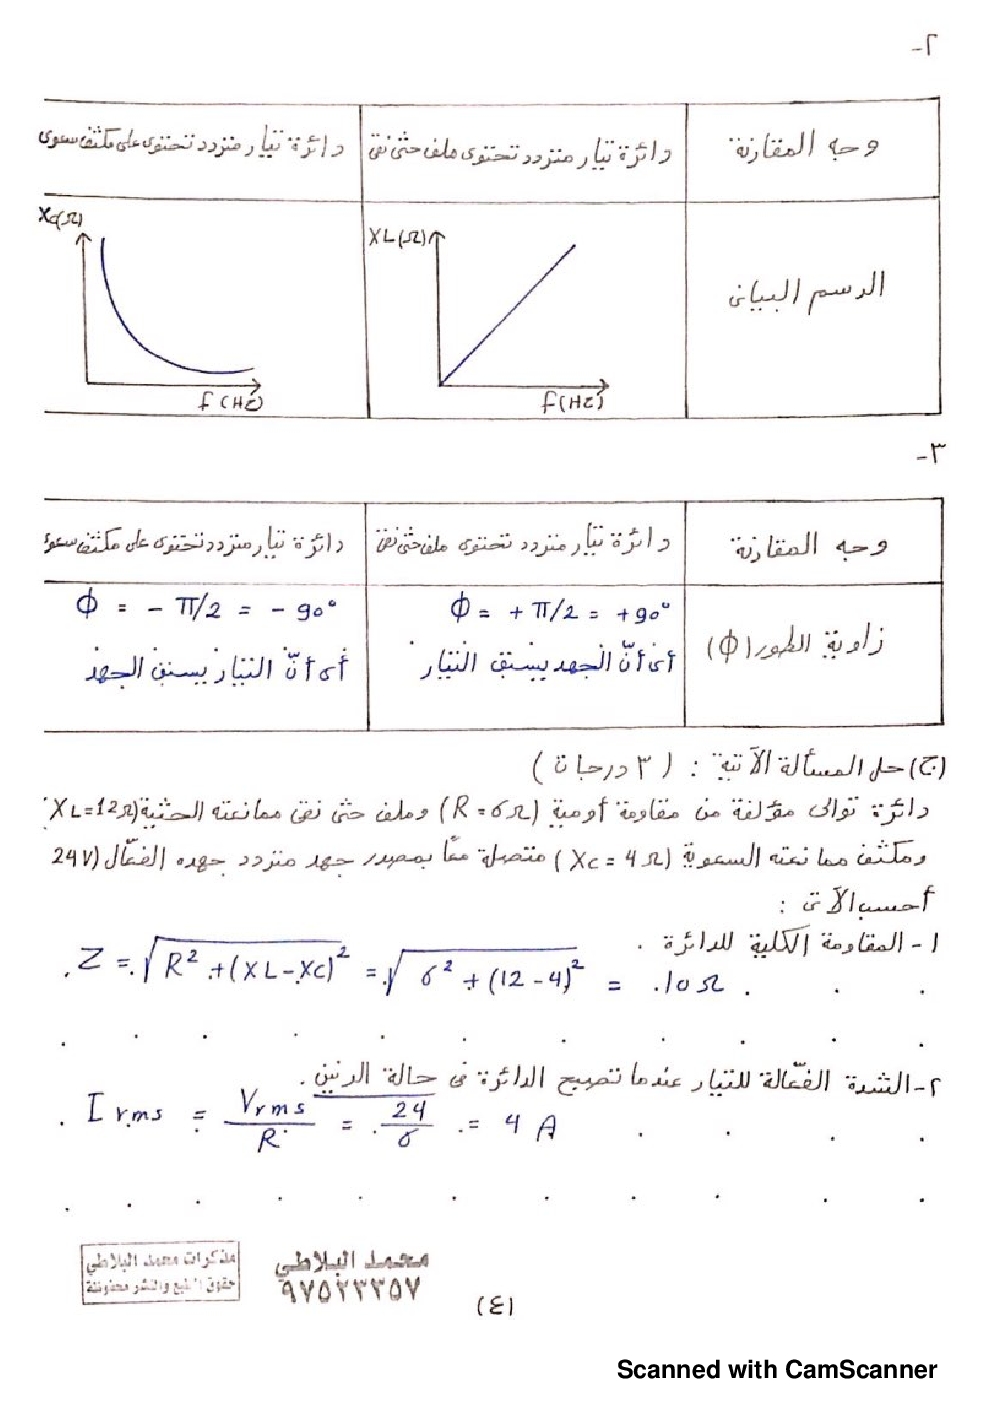 ٢-
وجه المقارنة
دائرة تيار متردد تحتوى ملف حثى نقى
دائرة تيار متردد تحتوى على مكثف سعوى
الرسم البيانى
XL(Ω)
f(Hz)
Xc(Ω)
f(Hz)
٣-
وجه المقارنة
دائرة تيار متردد تحتوى ملف حثى نقى
دائرة تيار متردد تحتوى على مكثف سعوى
زاوية الطور (Φ)
Φ = + π/2 = +90°
أى أنّ الجهد يسبق التيار
Φ = - π/2 = - 90°
أى أنّ التيار يسبق الجهد
(ج) حل المسألة الآتية : ( ٣ درجات )
دائرة توالى مؤلفة من مقاومة أومية (R = 6Ω) وملف حثى نقى ممانعته الحثية (XL=12Ω)
ومكثف ممانعته السعوية (Xc = 4Ω) متصلة معًا بمصدر جهد متردد جهده الفعّال (24V
أحسب الآتى :
١- المقاومة الكلية للدائرة .
Z = √R² + (XL-Xc)² = √6² + (12-4)² = 10Ω
٢- الشدة الفعّالة للتيار عندما تصبح الدائرة فى حالة الرنين .
Irms = Vrms/R = 24/6 = 4 A
مذكرات محمد البلاطي
حقوق الطبع والنشر محفوظة
محمد البلاطي
٩٧٥٢٣٣٥٧
(٤)
Scanned with CamScanner